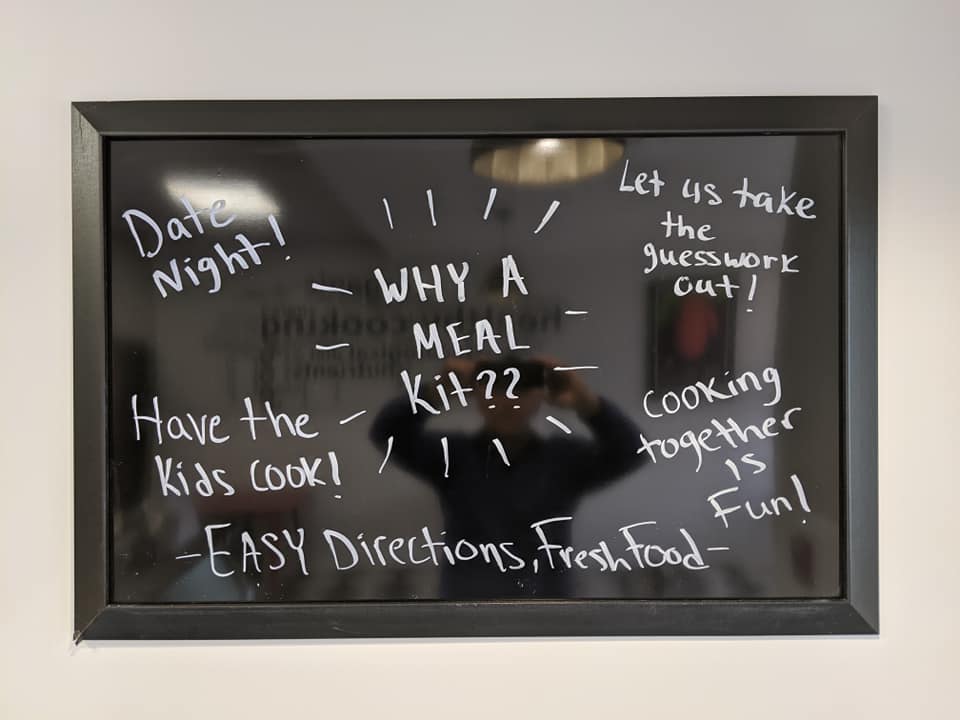 Date
Night!
WHY A
MEAL
Kit??
Let us take
the
guesswork
out!
Have the
Kids Cook!
Cooking
together
is
Fun!
-EASY Directions, Fresh Food-
healthy cooking